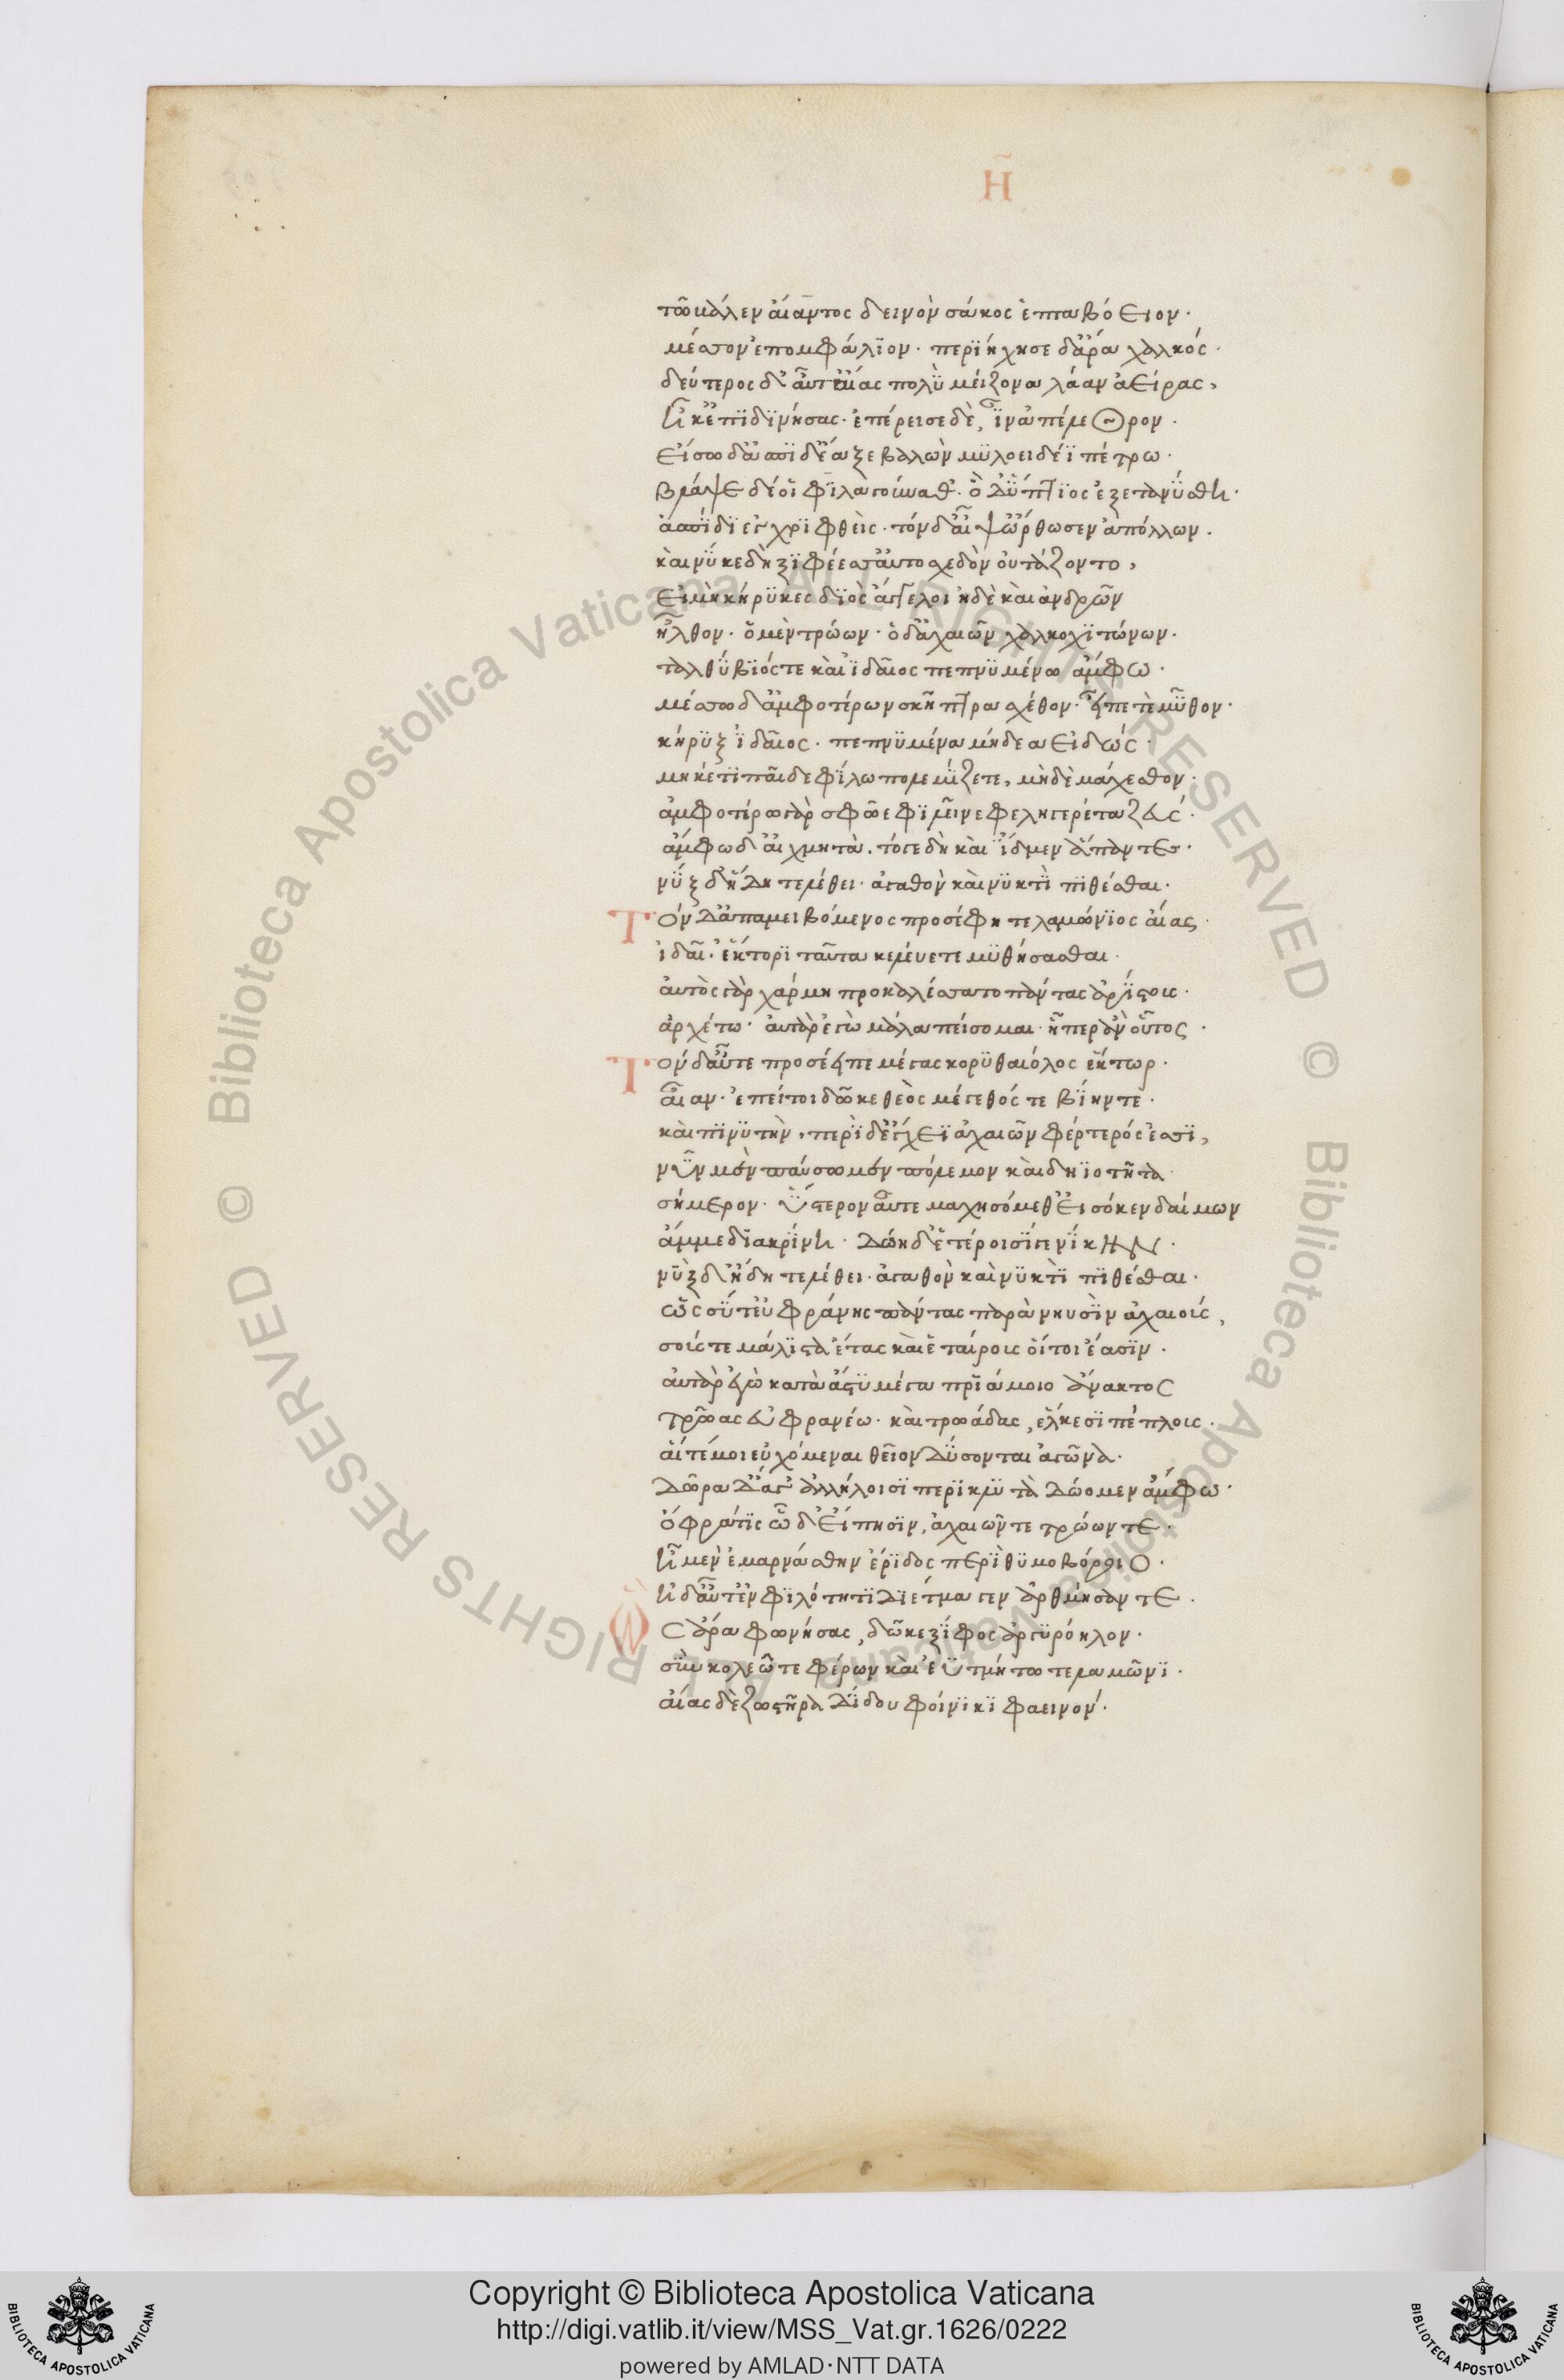 Η
τῶ βάλεν αἴαντος δεινὸν σάκος ἑπταβόειον·
μέσσον ἐπομφάλϊον· περϊήχησε δ' ἄρα χαλκός·
δεύτερος δ' αὖτ' αἴας πολῢ μείζονα λᾶαν ἀείρας,
ἧκ' ἐπϊδϊνήσας· ἐπέρεισε δὲ, ἶν' ἀπέλεθρον·
εἴσω δ' ἀσπϊδ' ἔαξε βαλὼν μϋλοειδέϊ πέτρω·
βλάψε δέ οἱ φίλα γούναθ'· ὁ δ' ὕπτϊος ἐξετανύσθη·
ἀσπίδϊ ἐγχρϊφθεὶς· τὸν δ' αἶψ' ὤρθωσεν ἀπόλλων·
καὶ νύ κε δὴ ξϊφέεσσ' αὐτοσχεδὸν οὐτάζοντο,
εἰ μὴ κήρϋκες δϊὸς ἄγγελοι ἠδὲ καὶ ἀνδρῶν
ἦλθον· ὁ μὲν τρώων· ὁ δ' ἀχαιῶν χαλκοχϊτώνων·
ταλθύβϊός τε καὶ ἰδαῖος πεπνϋμένω ἄμφω·
μέσσω δ' ἀμφοτέρων σκῆπτρα σχέθον· εἶπέ τε μῦθον·
κήρϋξ ἰδαῖος· πεπνϋμένα μήδεα εἰδώς·
μηκέτϊ παῖδε φίλω πολεμίζετε, μὴδὲ μάχεσθον·
ἀμφοτέρω γὰρ σφῶε φϊλεῖ νεφεληγερέτα ζεύς·
ἄμφω δ' αἰχμητά· τόγε δὴ καὶ ἴδμεν ἅπαντες·
νὺξ δ' ἤδη τελέθει· ἀγαθὸν καὶ νϋκτὶ πϊθέσθαι·
Τὸν δ' ἀπαμειβόμενος προσέφη τελαμώνϊος αἴας·
ἰδαῖ'· ἕκτορϊ ταῦτα κελεύετε μϋθήσασθαι·
αὐτὸς γὰρ χάρμη προκαλέσσατο πάντας ἀρίστους·
ἀρχέτω· αὐτὰρ ἐγὼ μάλα πείσομαι· ἧπερ ἂν οὗτος·
Τὸν δ' αὖτε προσέειπε μέγας κορϋθαιόλος ἕκτωρ·
αἶαν· ἐπεί τοι δῶκε θεὸς μέγεθός τε βίην τε·
καὶ πϊνϋτὴν, περὶ δ' ἔγχεϊ ἀχαιῶν φέρτερός ἐσσϊ,
νῦν μὲν παυσώμεν πόλεμον καὶ δηϊοτῆτα
σήμερον· ὕστερον αὖτε μαχησόμεθ' εἰσόκεν δαίμων
ἄμμε δϊακρίνη· δώη δ' ἑτέροισί γε νίκην·
νὺξ δ' ἤδη τελέθει· ἀγαθὸν καὶ νϋκτὶ πϊθέσθαι·
ὡς σύ τ' εὐφρήνης πάντας παρὰ νηυσὶν ἀχαιούς,
σούς τε μάλϊστα ἔτας καὶ ἑταίρους οἵ τοι ἔασϊν·
αὐτὰρ ἐγὼ κατὰ ἄστϋ μέγα πρϊάμοιο ἄνακτος
τρῶας εὐφρανέω· καὶ τρωάδας, ἑλκεσϊπέπλους·
αἵ τέ μοι εὐχόμεναι θεῖον δύσονται ἀγῶνα·
δῶρα δ' ἄγ' ἀλλήλοισϊ περϊκλϋτὰ δώομεν ἄμφω·
ὄφρα τὶς ὧδ' εἴπησϊν, ἀχαιῶν τε τρώων τε·
ἠ μὲν ἐμαρνάσθην ἔρϊδος περὶ θϋμοβόροιο·
ἠδ' αὖτ' ἐν φϊλότητϊ δϊέτμαγεν ἀρθμήσαντε·
Ὣς ἄρα φωνήσας, δῶκε ξίφος ἀργϋρόηλον·
σὺν κολεῶ τε φέρων καὶ ἐϋτμήτω τελαμῶνϊ·
αἴας δὲ ζωστῆρα δίδου φοίνϊκϊ φαεινόν·
Copyright © Biblioteca Apostolica Vaticana
http://digi.vatlib.it/view/MSS_Vat.gr.1626/0222
powered by AMLAD·NTT DATA
BIBLIOTECA APOSTOLICA VATICANA
BIBLIOTECA APOSTOLICA VATICANA
© Biblioteca Apostolica Vaticana ALL RIGHTS RESERVED
© Biblioteca Apostolica Vaticana ALL RIGHTS RESERVED